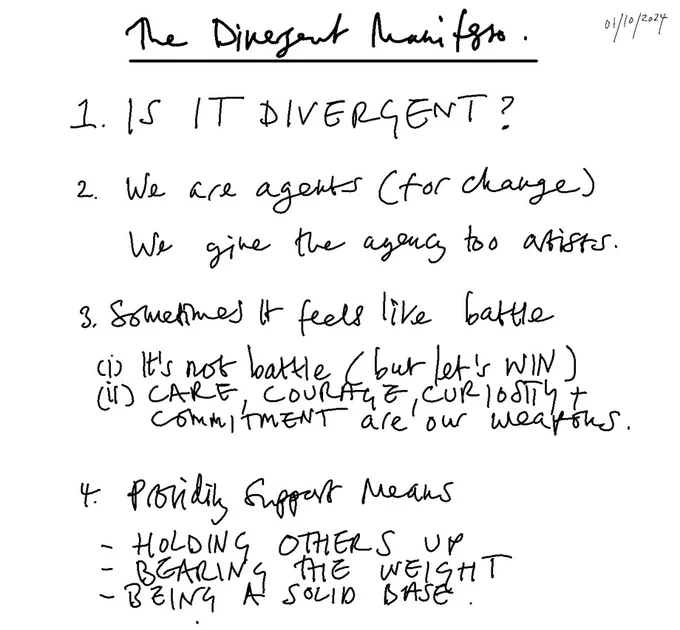 The Divergent Manifesto.
01/10/2024
1. IS IT DIVERGENT?
2. We are agents (for change)
We give the agency too artists.
3. Sometimes It feels like battle
(i) It's not battle (but let's WIN)
(ii) CARE, COURAGE, CURIOSITY +
COMMITMENT are our weapons.
4. Providing Support Means
- HOLDING OTHERS UP
- BEARING THE WEIGHT
- BEING A SOLID BASE.